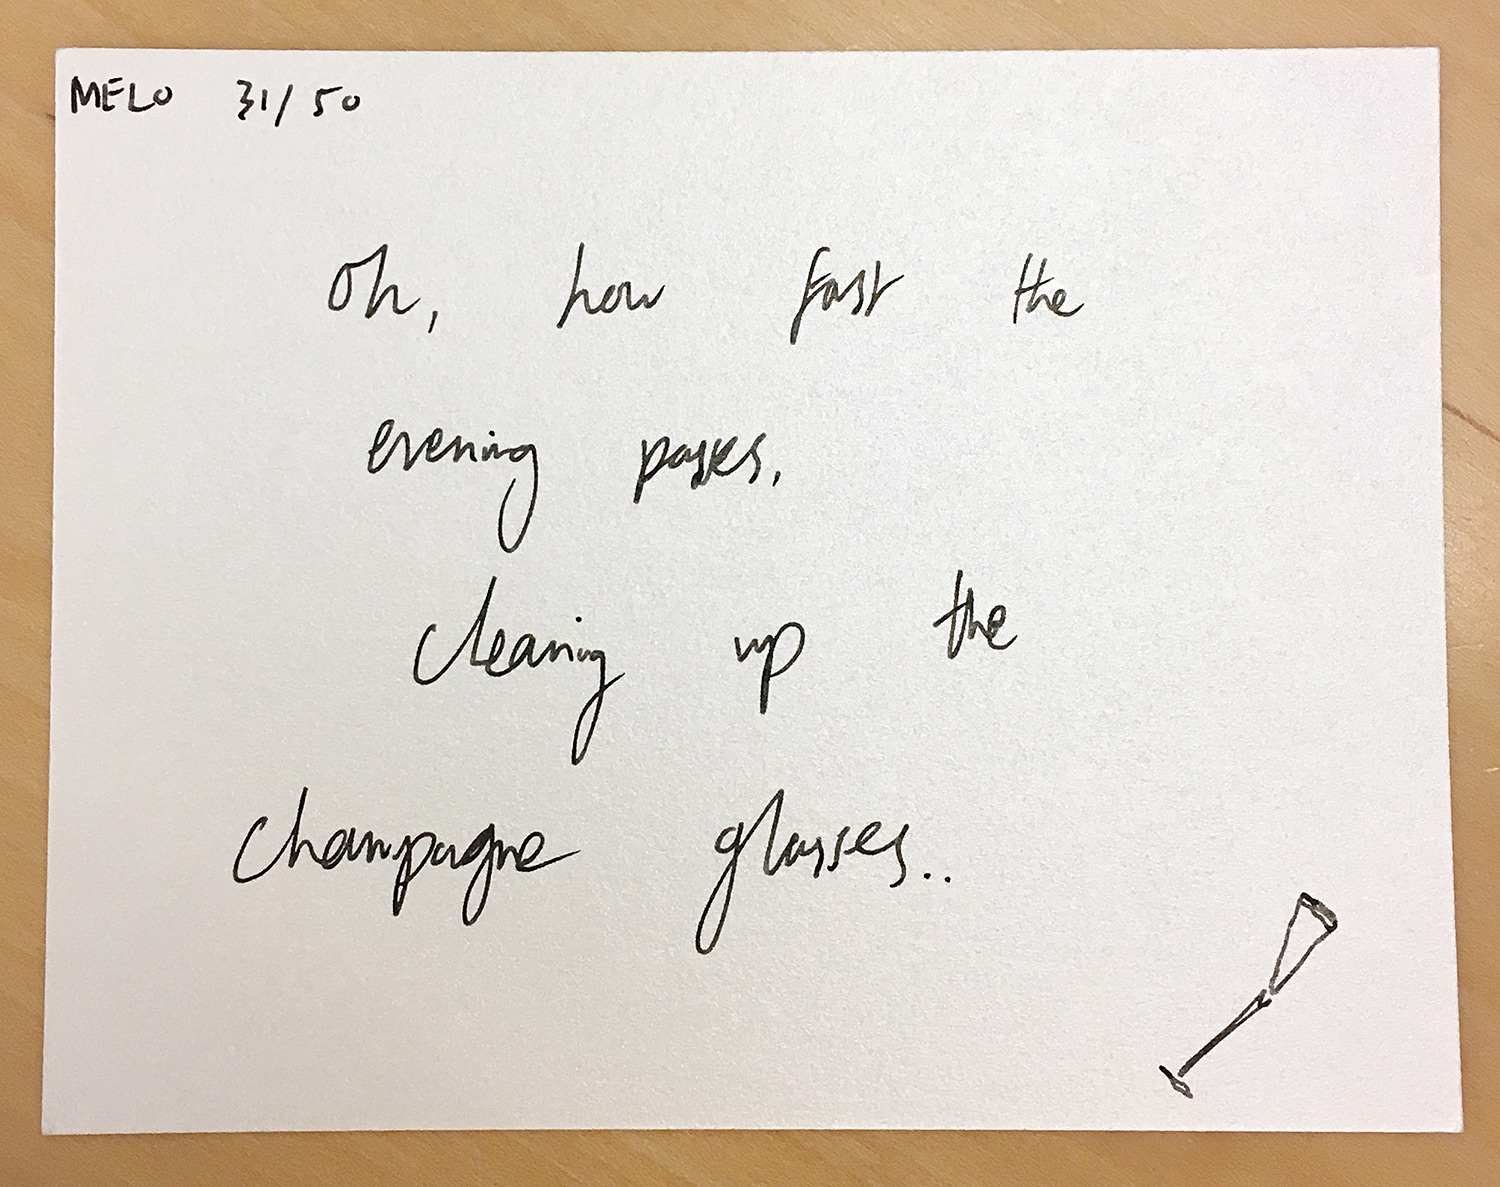 MELO 31/50
Oh, how fast the
evening passes,
cleaning up the
champagne glasses..